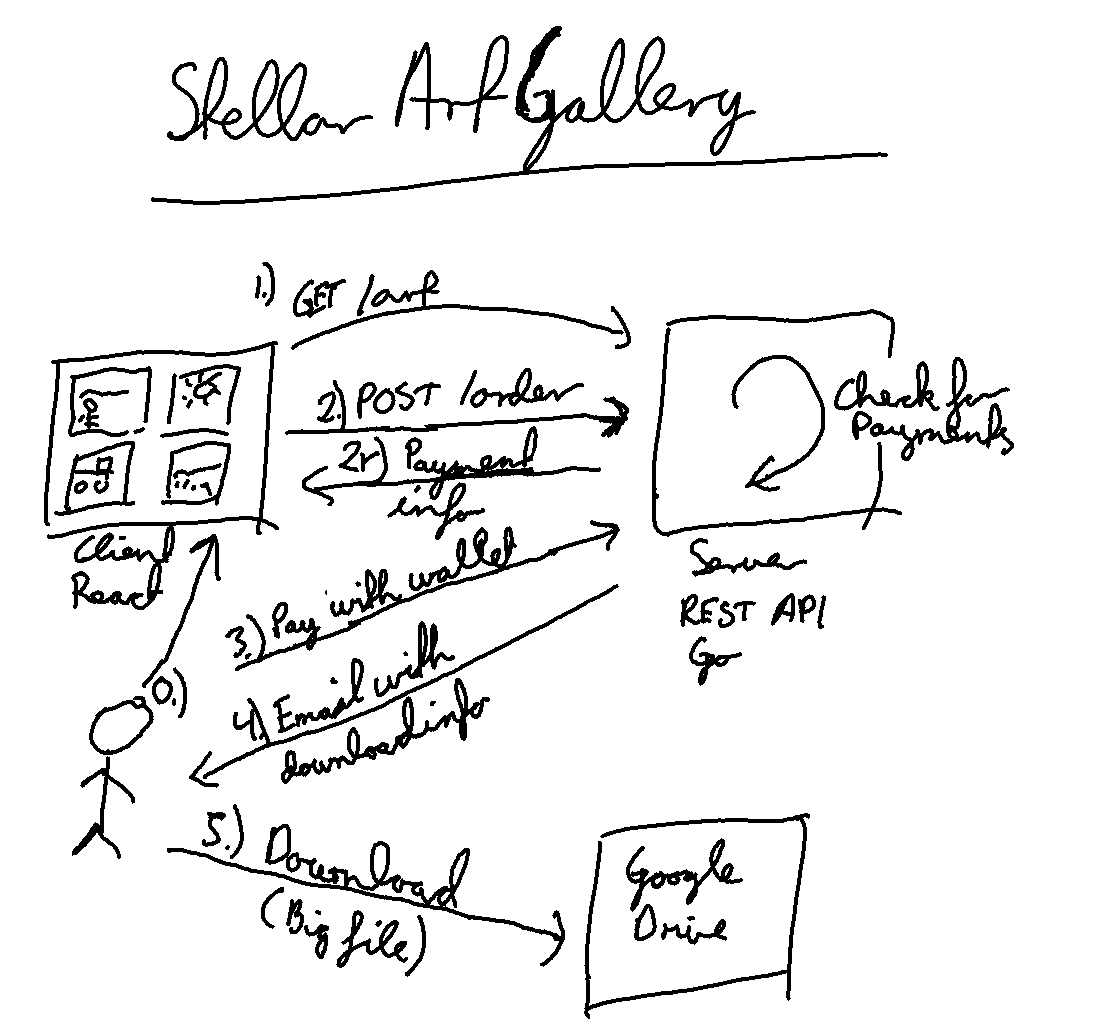 Stellar Art Gallery
1.) GET /art
2.) POST /order
2r) Payment
info
Check for
Payments
Client
React
Server
REST API
Go
3.) Pay with wallet
0.)
4.) Email with
download info
5.) Download
(Big file)
Google
Drive